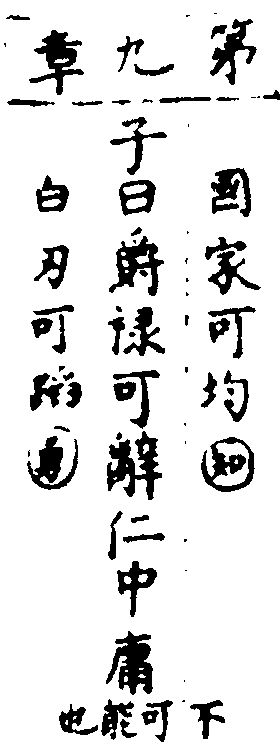 第九章
國家可均知
子曰爵禄可辭仁中庸
白刃可蹈勇
不可能也